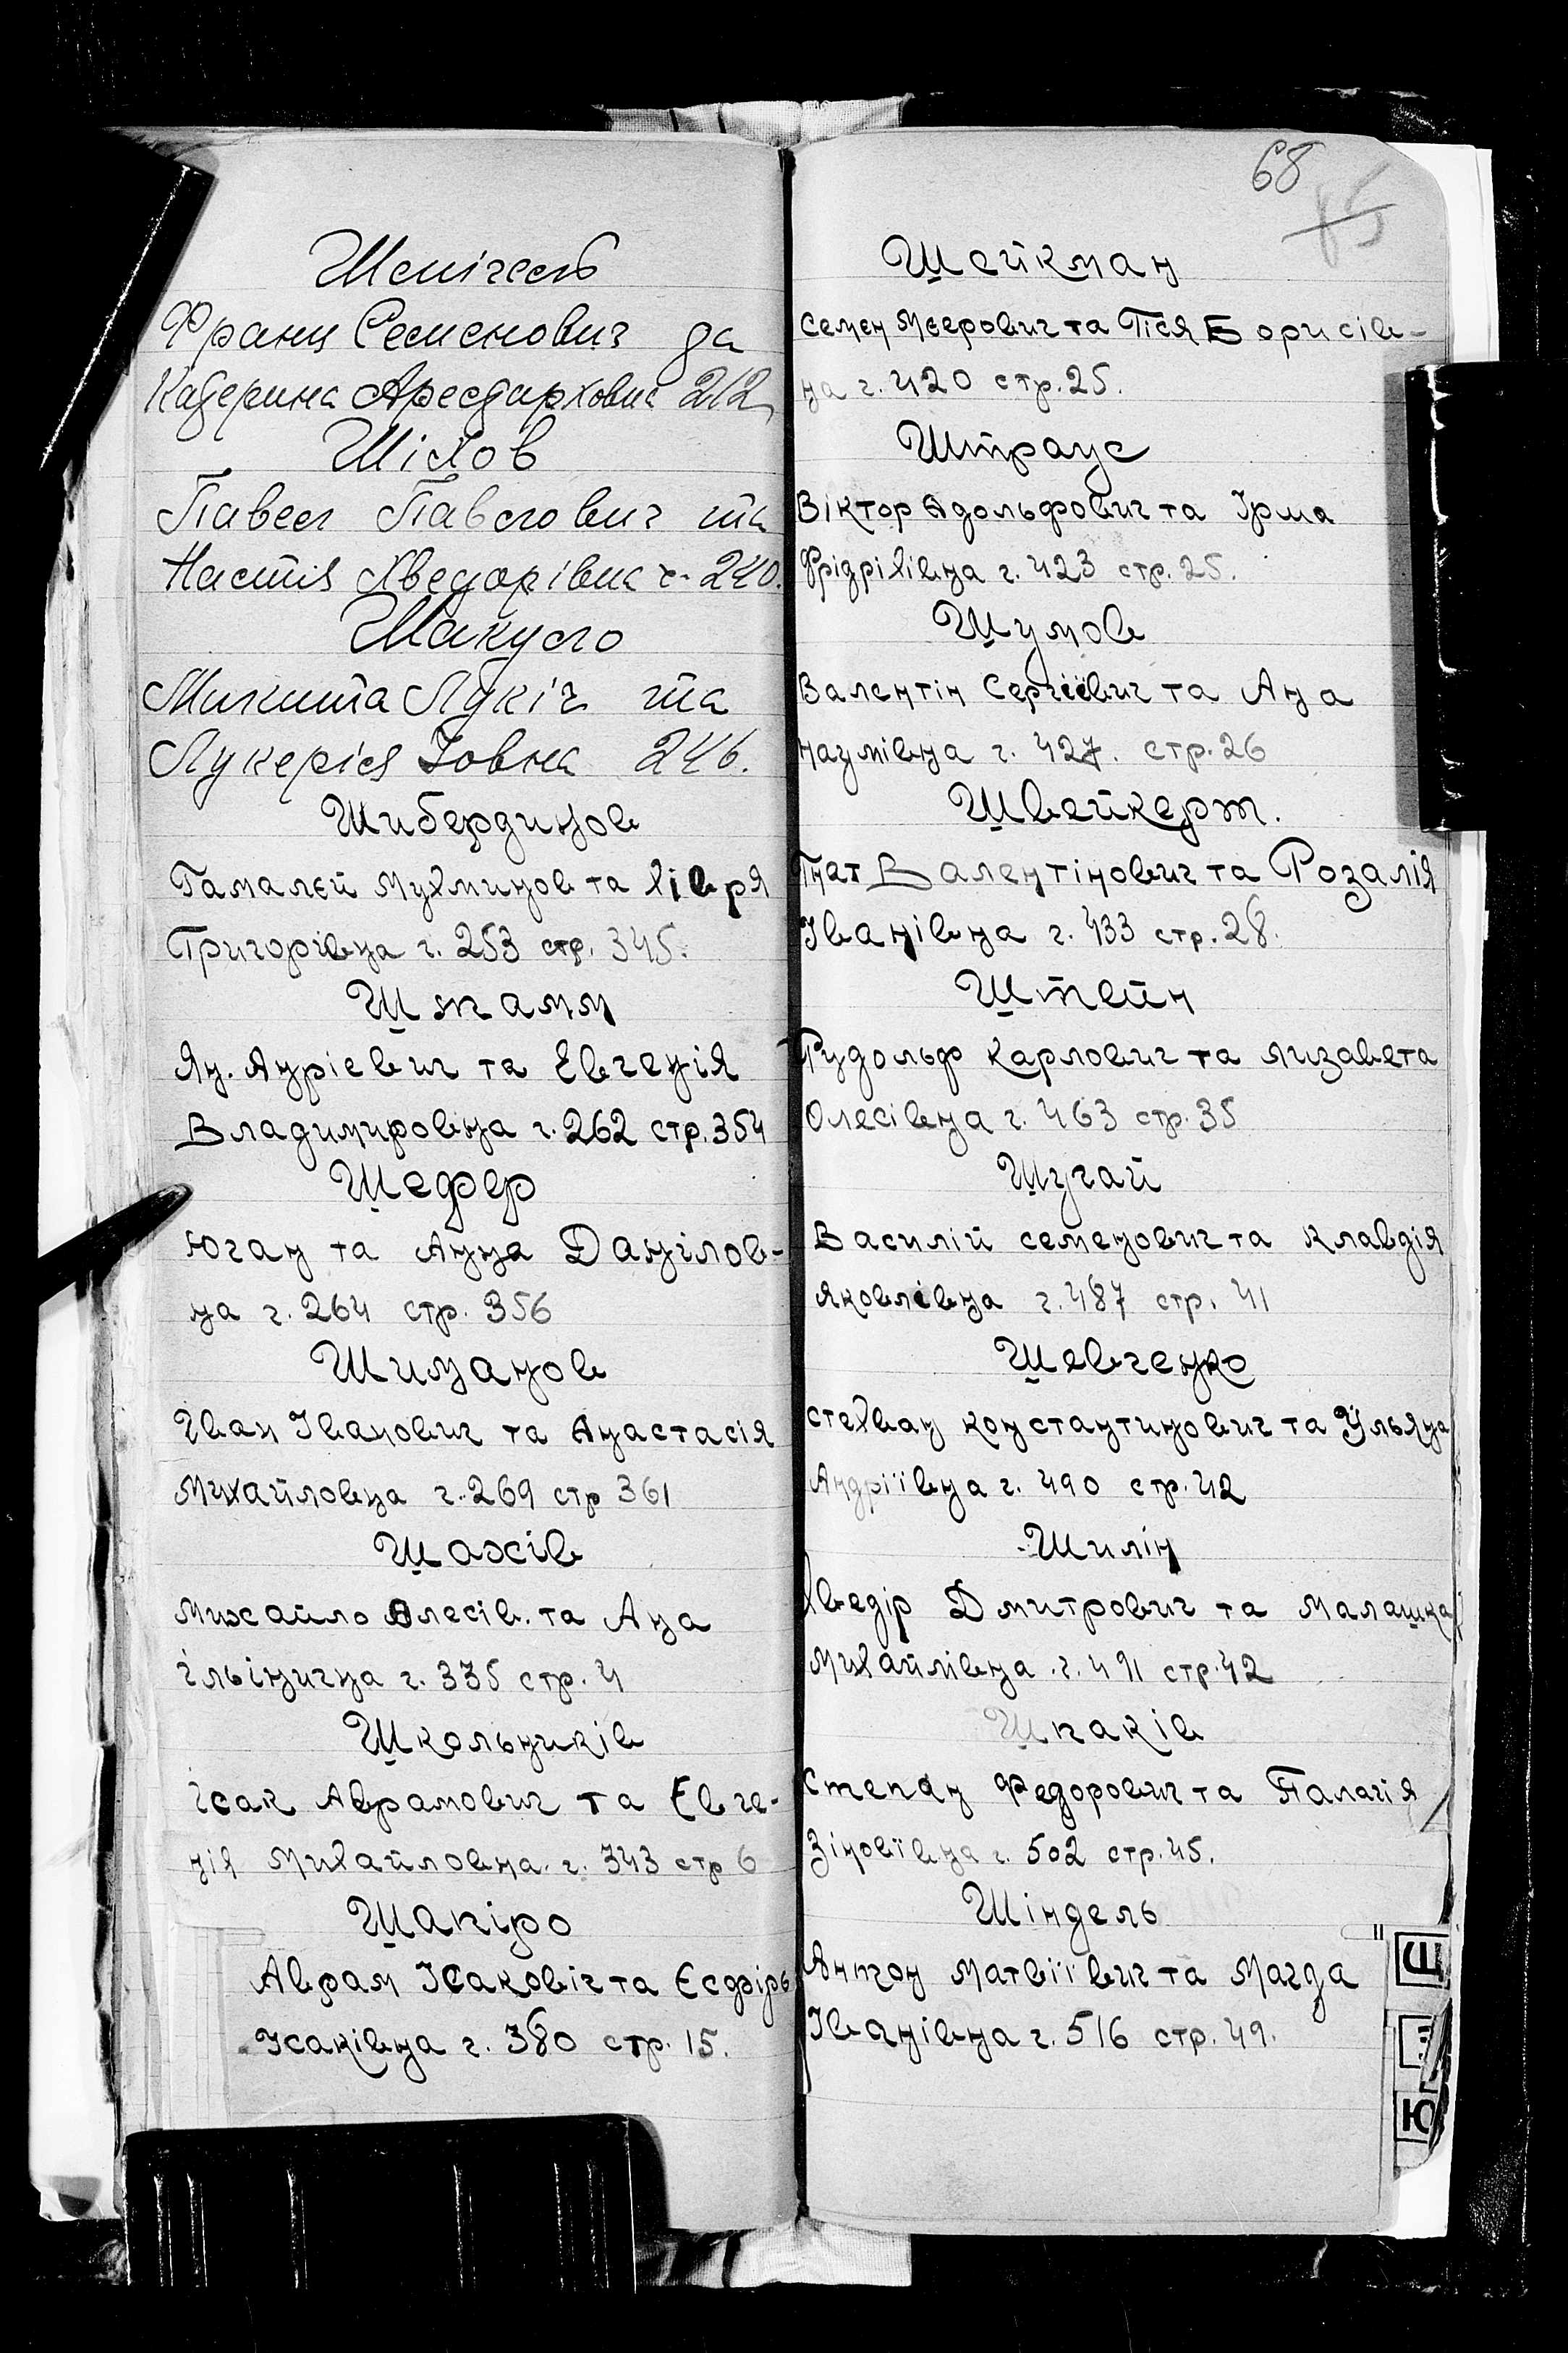 Франц Семенович да
Катерина Арестарховна 212
Шілов
Павел Павлович та
Настія Хведорівна ч. 240.
Шакуло
Микита Лукіч та
Лукерія Іовна 246.
Шибердинов
Гамалєй Мухминов та Хівря
Григорівна ч. 253 стр. 345.
Штамм
Ян. Андріевич та Евгенія
Владимировна ч. 262 стр. 354
Шефер
Юган та Анна Данілов-
на ч. 264 стр. 356
Шиманов
Іван Іванович та Анастасія
Михайловна ч. 269 стр 361
Шахів
Михайло Олесів. та Ана
Ільінична ч. 335 стр. 4
Школьників
Ісак Аврамович та Евге-
нія Михайловна. ч. 343 стр 6
Шапіро
Аврам Ісаковіч та Єсфірь
Ісаківна ч. 380 стр. 15.
68
85
Шейкман
Семен Меерович та Пєся Борисів-
на ч. 420 стр. 25.
Штраус
Віктор Адольфович та Ірма
Фрідріхівна ч. 423 стр. 25.
Шумов
Валентін Сергіївич та Ана
Наумівна ч. 427. стр. 26
Швейкерт.
Гнат Валентінович та Розалія
Іванівна ч. 433 стр. 28.
Штейн
Рудольф Карлович та Лизавета
Олесівна ч. 463 стр. 35
Шугай
Василій Семенович та Клавдія
Яковлівна ч. 487 стр. 41
Шевченко
Стехван Константинович та Ульяна
Андріївна ч. 490 стр. 42
Шилін
Хведір Дмитрович та Малашка
Михайлівна ч. 491 стр. 42
Шпаків
Степан Федорович та Палагія
Зіновіївна ч. 502 стр. 45.
Шіндель
Антон Матвіївич та Магда
Іванівна ч. 516 стр. 49.
Щ
Ю